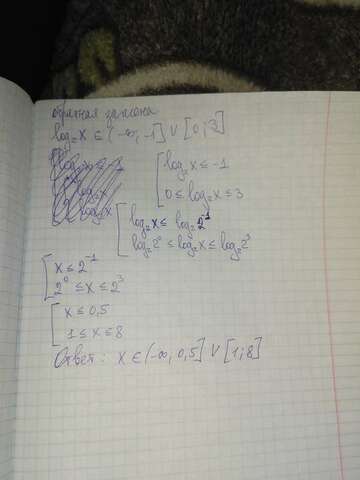 обратная замена
log₂x ∈ (-∞, -1] ∨ [0; 3]
[ log₂x ≤ -1
0 ≤ log₂x ≤ 3
[ log₂x ≤ log₂2⁻¹
log₂2⁰ ≤ log₂x ≤ log₂2³
[ x ≤ 2⁻¹
2⁰ ≤ x ≤ 2³
[ x ≤ 0,5
1 ≤ x ≤ 8
Ответ: x ∈ (-∞, 0,5] ∨ [1; 8]